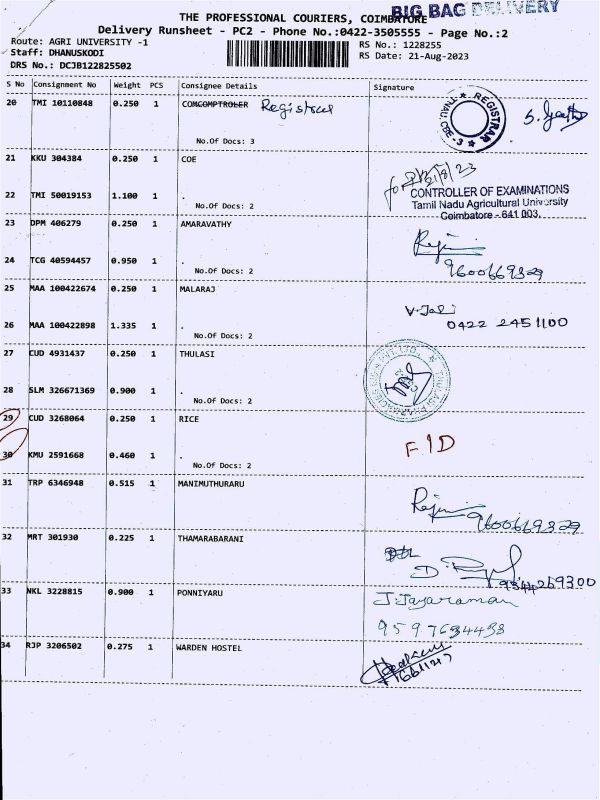 BIG BAG DELIVERY
THE PROFESSIONAL COURIERS, COIMBATORE
Delivery Runsheet - PC2 - Phone No.:0422-3505555 - Page No.:2
Route: AGRI UNIVERSITY -1
RS No.: 1228255
Staff: DHANUSKODI
RS Date: 21-Aug-2023
DRS No.: DCJB122825502
S No Consignment No Weight PCS Consignee Details Signature
20 TMI 10110848 0.250 1 COMCOMPTROLER Registrar
REGISTRAR
TNAU CBE-3
No.Of Docs: 3
21 KKU 304384 0.250 1 COE
for 21/8/23
CONTROLLER OF EXAMINATIONS
22 TMI 50019153 1.100 1 .
Tamil Nadu Agricultural University
No.Of Docs: 2
Coimbatore - 641 003.
23 DPM 406279 0.250 1 AMARAVATHY
24 TCG 40594457 0.950 1 .
9600669329
No.Of Docs: 2
25 MAA 100422674 0.250 1 MALARAJ
26 MAA 100422898 1.335 1 .
0422 2451100
No.Of Docs: 2
27 CUD 4931437 0.250 1 THULASI
28 SLM 326671369 0.900 1 .
No.Of Docs: 2
29 CUD 3268064 0.250 1 RICE
FID
30 KMU 2591668 0.460 1 .
No.Of Docs: 2
31 TRP 6346948 0.515 1 MANIMUTHURARU
9600669329
32 MRT 301930 0.225 1 THAMARABARANI
9344269300
33 NKL 3228815 0.900 1 PONNIYARU
J.Jayaraman
9597634438
34 RJP 3206502 0.275 1 WARDEN HOSTEL